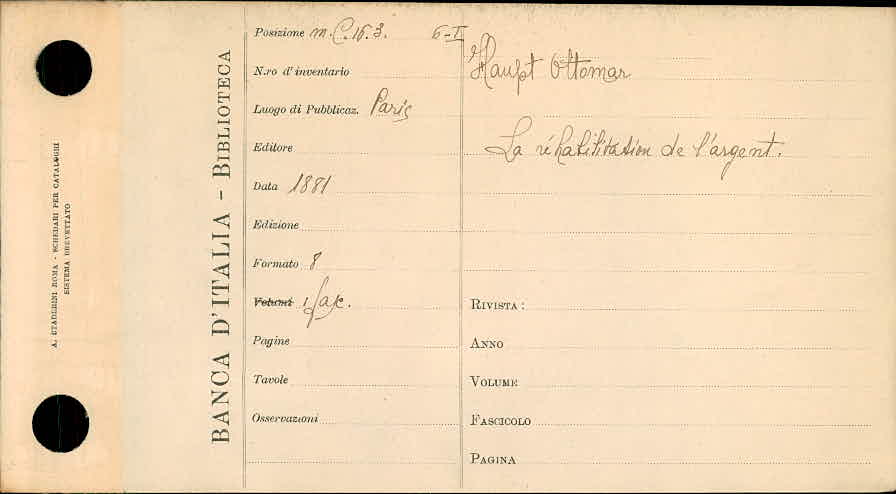 A. STADERINI ROMA - SCHEDARI PER CATALOGHI
SISTEMA BREVETTATO
BANCA D'ITALIA - BIBLIOTECA
Posizione m. C. 16. 3. 6-I
N.ro d'inventario
Luogo di Pubblicaz. Paris
Editore
Data 1881
Edizione
Formato 8
Volumi 1 fasc.
Pagine
Tavole
Osservazioni
Haupt Ottomar
La réhabilitation de l'argent.
RIVISTA:
ANNO
VOLUME
FASCICOLO
PAGINA